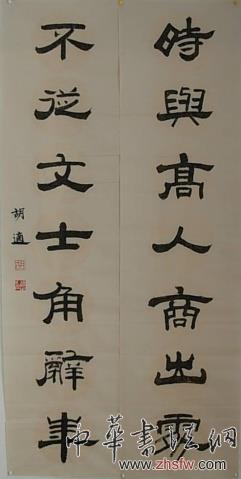 時與髙人商出處
不從文士角辭華
胡適
中華書法網
www.zhsfw.com